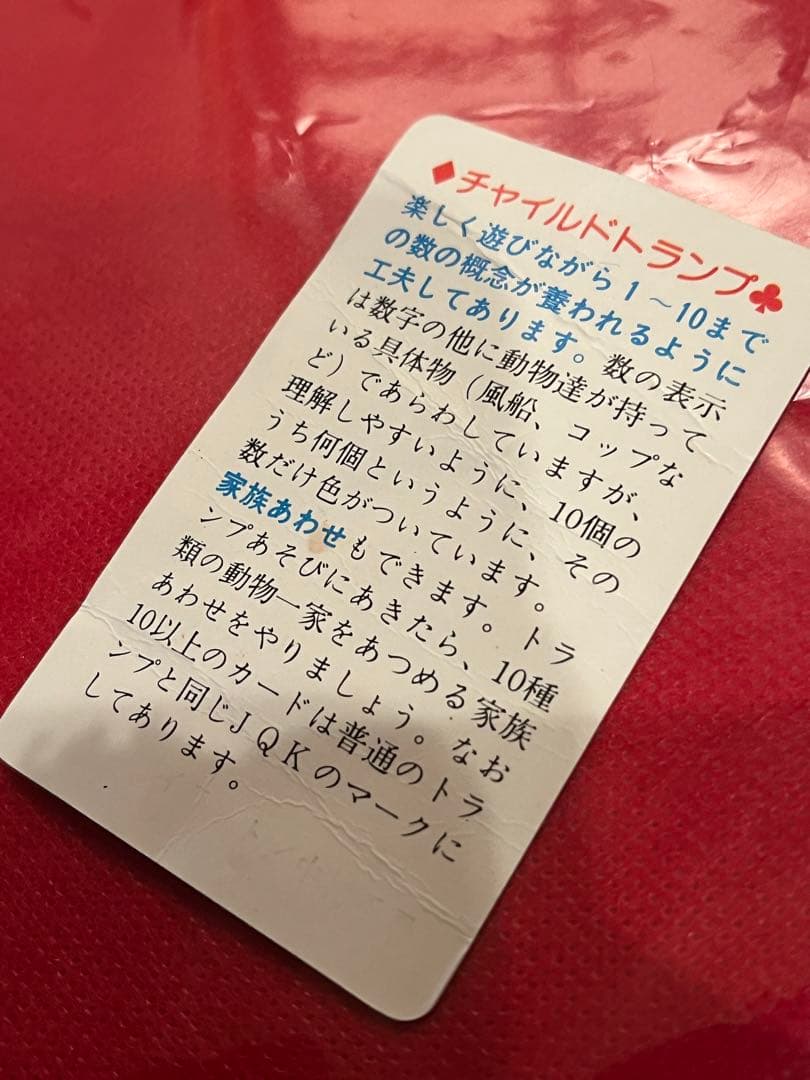 ♦チャイルドトランプ♣
楽しく遊びながら1〜10まで
の数の概念が養われるように
工夫してあります。数の表示
は数字の他に動物達が持って
いる具体物（風船、コップな
ど）であらわしていますが、
理解しやすいように、10個の
うち何個というように、その
数だけ色がついています。
家族あわせもできます。トラ
ンプあそびにあきたら、10種
類の動物一家をあつめる家族
あわせをやりましょう。なお
10以上のカードは普通のトラ
ンプと同じJQKのマークに
してあります。